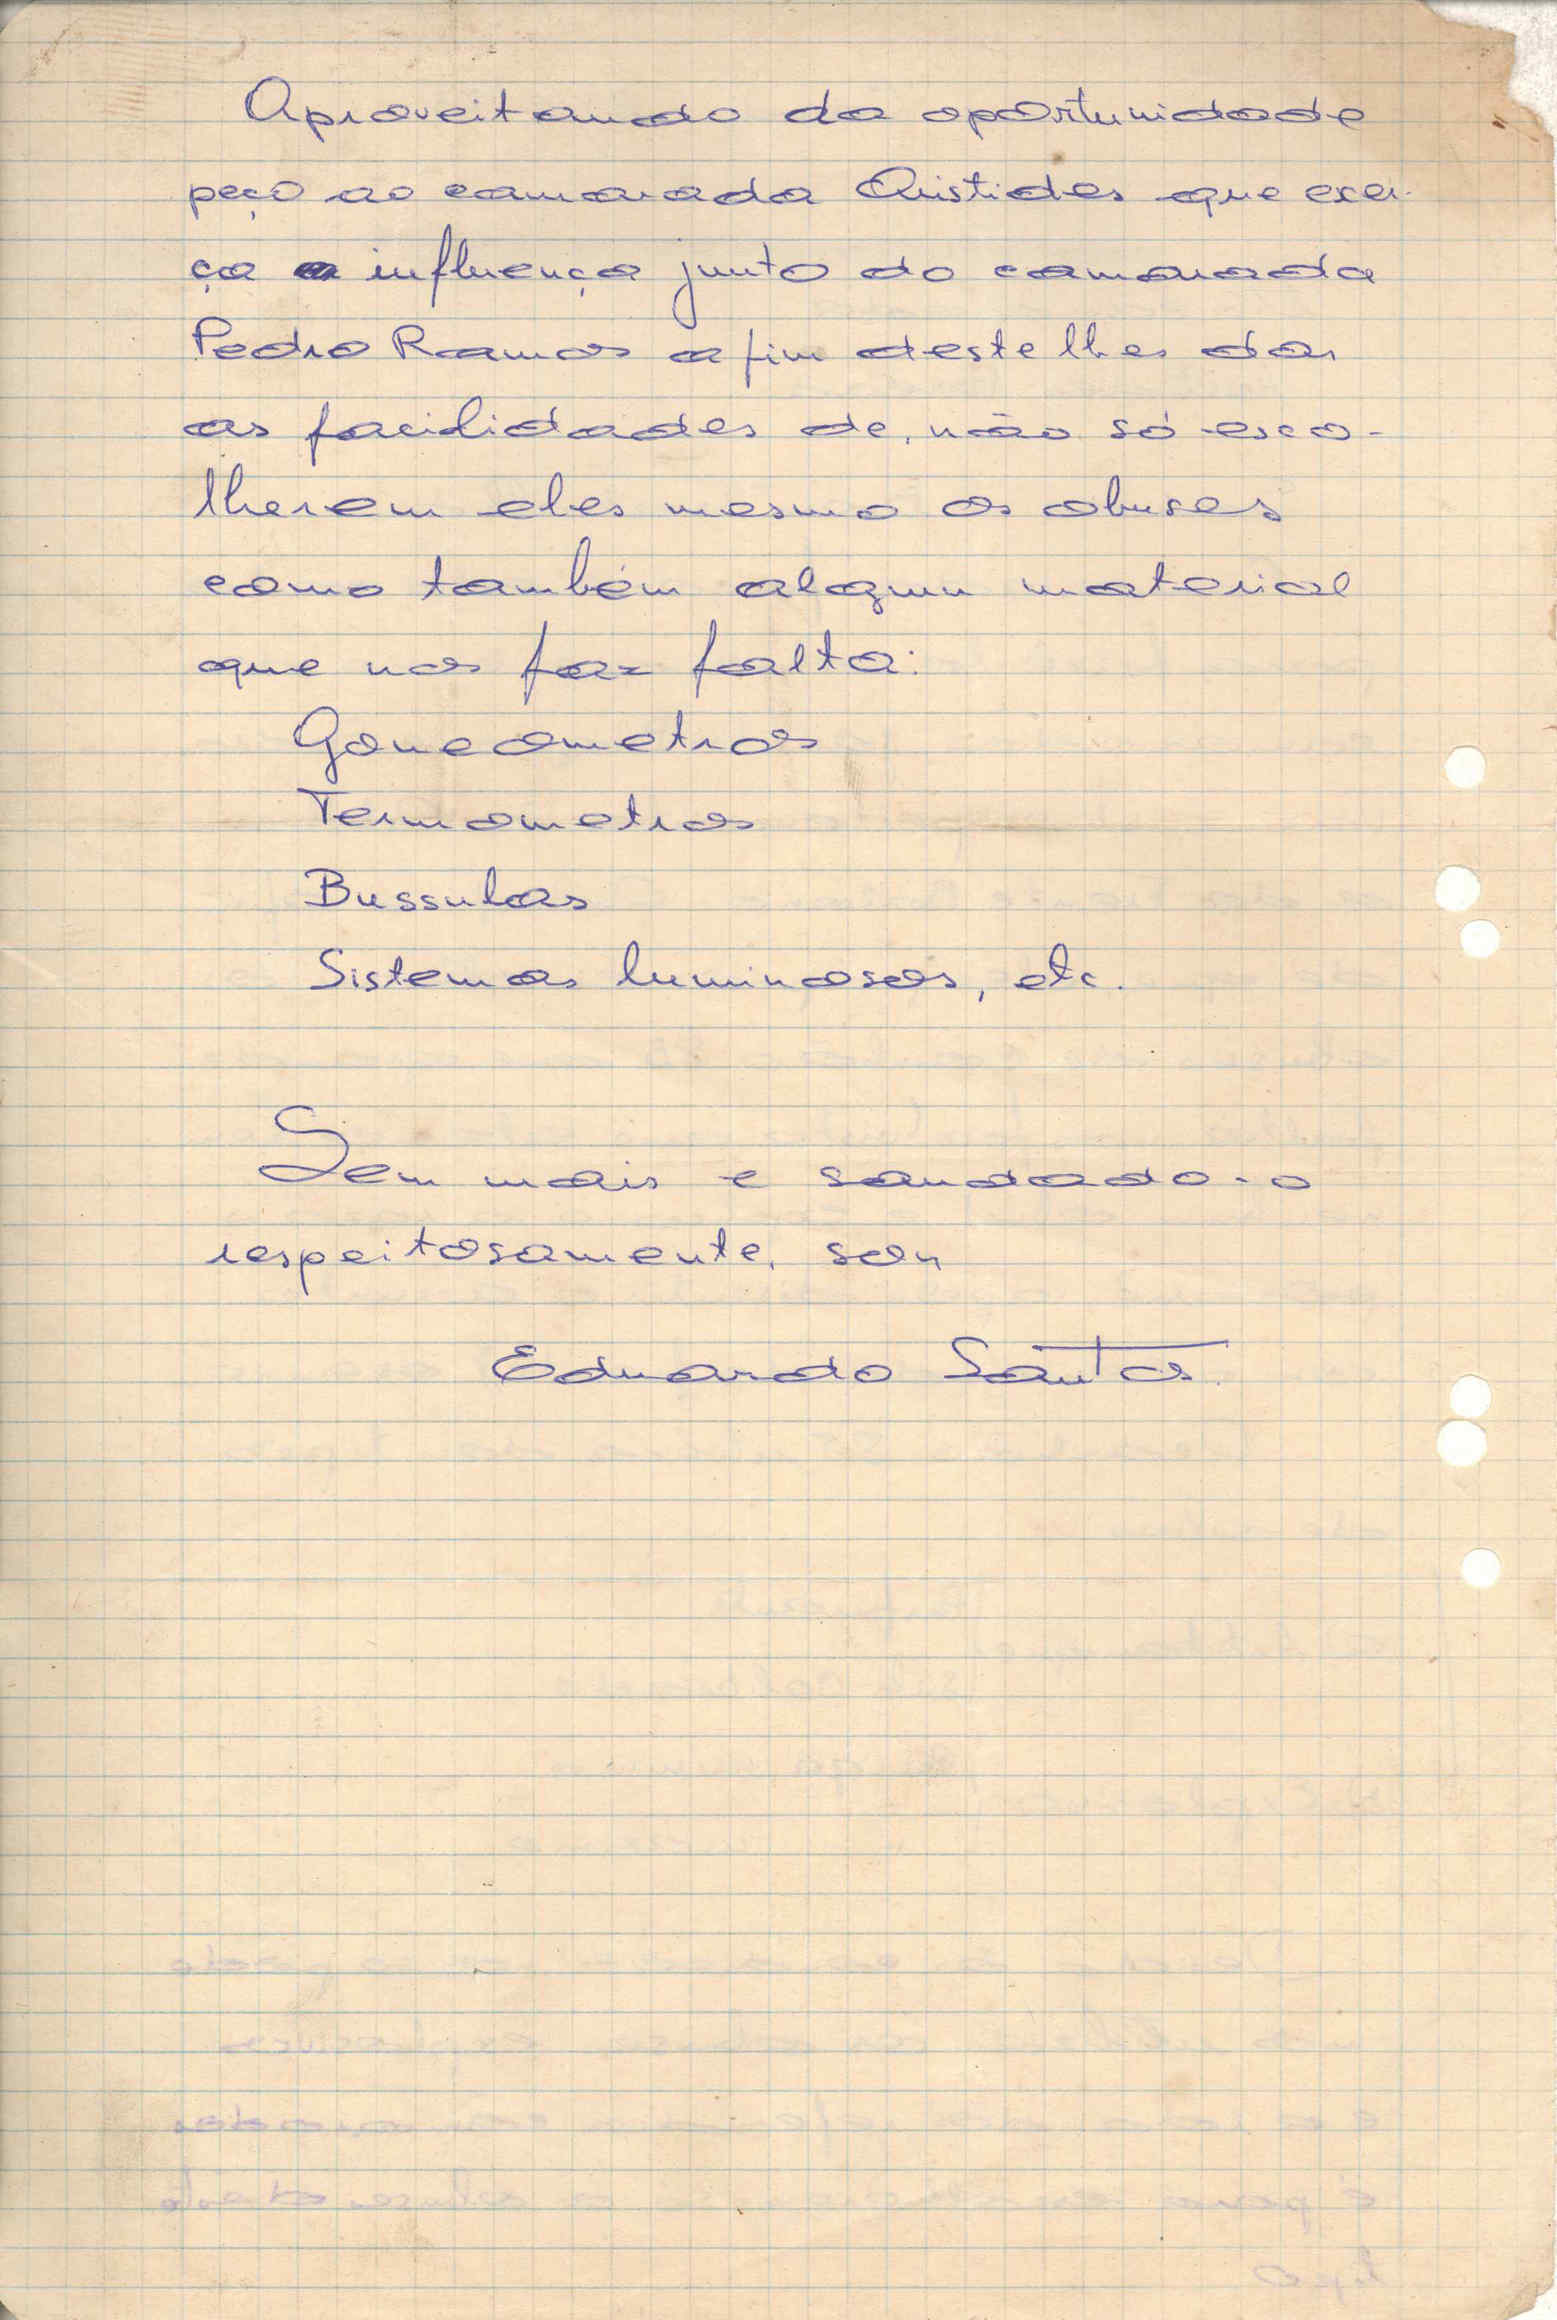 Aproveitando da oportunidade
peço ao camarada Aristides que exer-
ça a influença junto do camarada
Pedro Ramos a fim deste lhes dar
as facilidades de, não só esco-
lherem eles mesmo os obuses
como também algum material
que nos faz falta:
Goneometros
Termometros
Bussulas
Sistemas luminosos, etc.
Sem mais e saudado-o
respeitosamente, sou
Eduardo Santos.